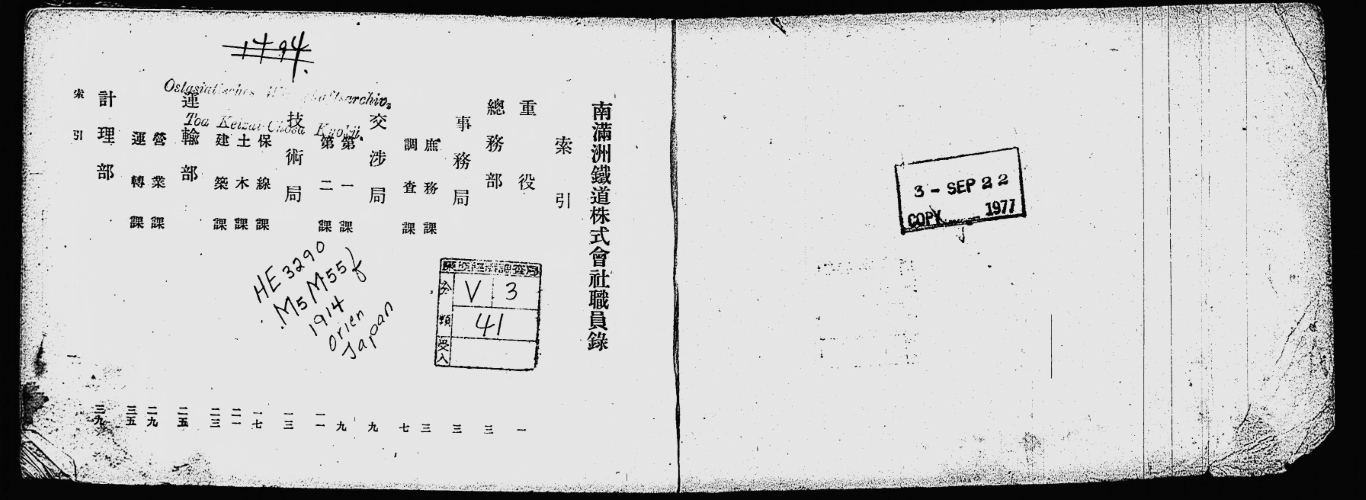 南滿洲鐵道株式會社職員錄
索引
重役 一
總務部 三
事務局 三
庶務課 三
調査課 七
交涉局 九
第一課 九
第二課 一一
技術局 一三
保線課 一七
土木課 二一
建築課 二三
運輸部 二五
營業課 二九
運轉課 三五
計理部 三九
索引
1794.
Ostasiatisches Wirtschaftsarchiv,
Toa Keizai Chosa Kyoku.
HE 3290
.M5 M55f
1914
Orien
Japan
分類
V 3
41
受入
3 - SEP 22
COPY 1977